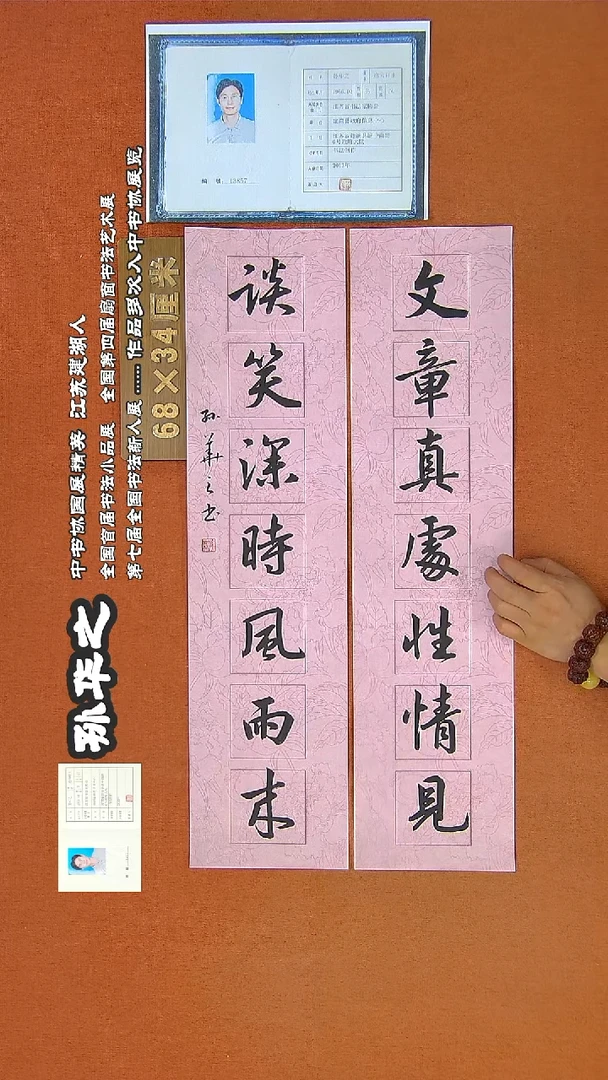 文章真處性情見
談笑深時風雨来
孙華之书
68×34厘米
孙华之
中书协国展精英 江苏建湖人
全国首届书法小品展 全国第四届扇面书法艺术展
第七届全国书法新人展……作品多次入中书协展览